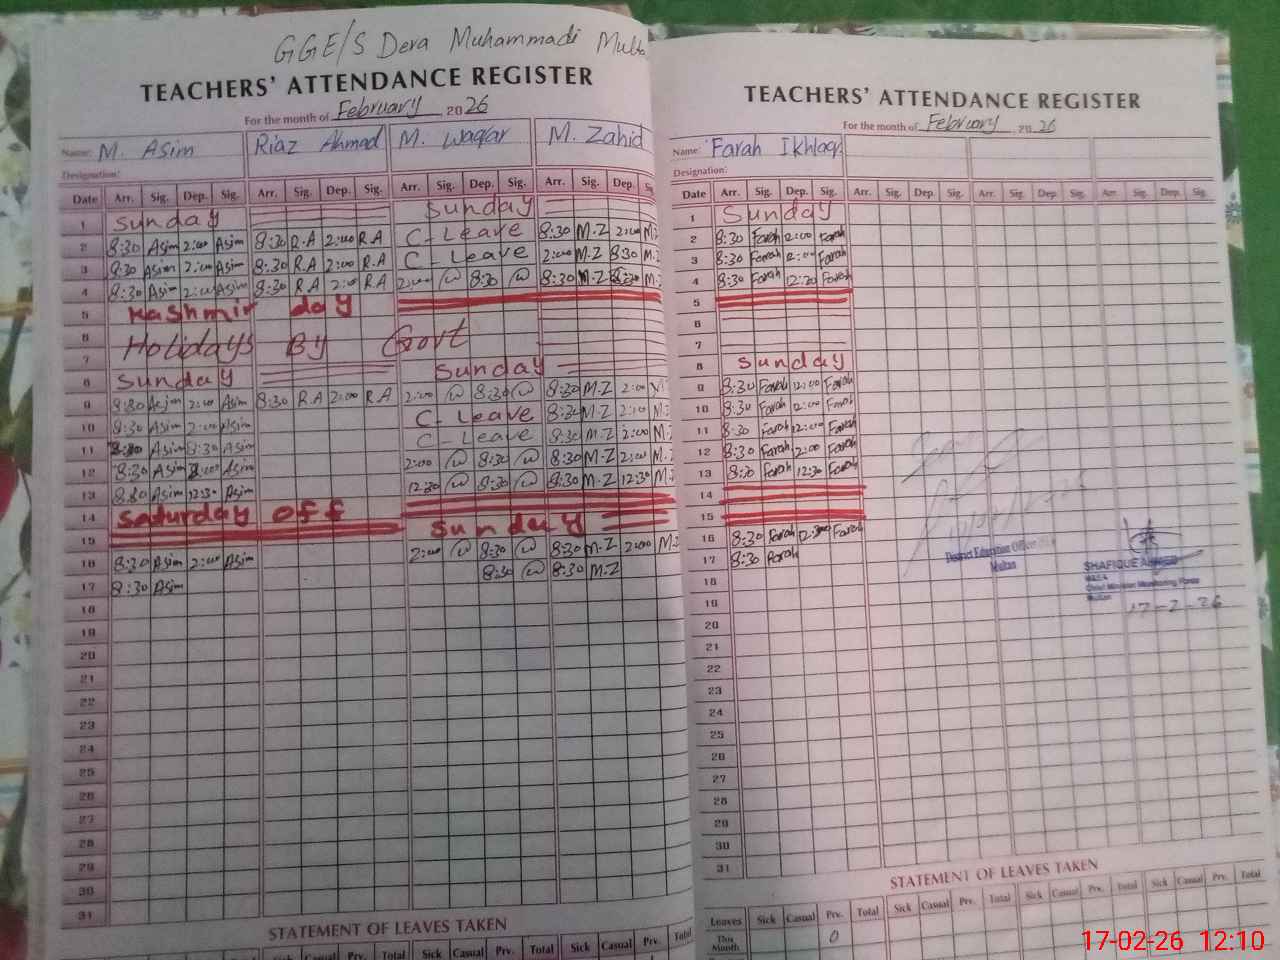 GGE/S Dera Muhammadi Multa
TEACHERS' ATTENDANCE REGISTER
For the month of February 2026
Name: M. Asim Riaz Ahmad M. Waqar M. Zahid
Designation:
Date Arr. Sig. Dep. Sig. Arr. Sig. Dep. Sig. Arr. Sig. Dep. Sig. Arr. Sig. Dep. Sig.
1 Sunday Sunday
2 8:30 Asim 2:00 Asim 8:30 R.A 2:00 R.A C-Leave 8:30 M.Z 2:00 M.Z
3 8:30 Asim 2:00 Asim 8:30 R.A 2:00 R.A C-Leave 2:00 M.Z 8:30 M.Z
4 8:30 Asim 2:00 Asim 8:30 R.A 2:00 R.A 2:00 W 8:30 W 8:30 M.Z 8:30 M.
5 Kashmir day
6 Holidays By Govt
7
8 Sunday Sunday
9 8:30 Asim 2:00 Asim 8:30 R.A 2:00 R.A 2:00 W 8:30 W 8:30 M.Z 2:00
10 8:30 Asim 2:00 Asim C-Leave 8:30 M.Z 2:00 M.
11 8:30 Asim 8:30 Asim C-Leave 8:30 M.Z 2:00 M.
12 8:30 Asim 2:00 Asim 2:00 W 8:30 W 8:30 M.Z 2:00 M.Z
13 8:30 Asim 12:30 Asim 12:30 W 8:30 W 8:30 M.Z 12:30 M.Z
14 Saturday off
15 Sunday
16 8:30 Asim 2:00 Asim 2:00 W 8:30 W 8:30 M.Z 2:00 M.Z
17 8:30 Asim 8:30 W 8:30 M.Z
18
19
20
21
22
23
24
25
26
27
28
29
30
31
STATEMENT OF LEAVES TAKEN
Sick Casual Prv. Total Sick Casual Prv. Total
TEACHERS' ATTENDANCE REGISTER
For the month of February 2026
Name: Farah Ikhlaq
Designation:
Date Arr. Sig. Dep. Sig. Arr. Sig. Dep. Sig. Arr. Sig. Dep. Sig. Arr. Sig. Dep. Sig.
1 Sunday
2 8:30 Farah 2:00 Farah
3 8:30 Farah 2:00 Farah
4 8:30 Farah 12:30 Farah
5
6
7
8 Sunday
9 8:30 Farah 12:00 Farah
10 8:30 Farah 2:00 Farah
11 8:30 Farah 12:00 Farah
12 8:30 Farah 2:00 Farah
13 8:30 Farah 12:30 Farah
14
15
16 8:30 Farah Farah
17 8:30 Farah
18
19
20
21
22
23
24
25
26
27
28
29
30
31
District Education Officer
Multan
SHAFIQUE
Chief Minister Monitoring Force
Multan
17-2-26
STATEMENT OF LEAVES TAKEN
Leaves Sick Casual Prv. Total Sick Casual Prv. Total Sick Casual Prv. Total Sick Casual Prv. Total
This Month 0
17-02-26 12:10